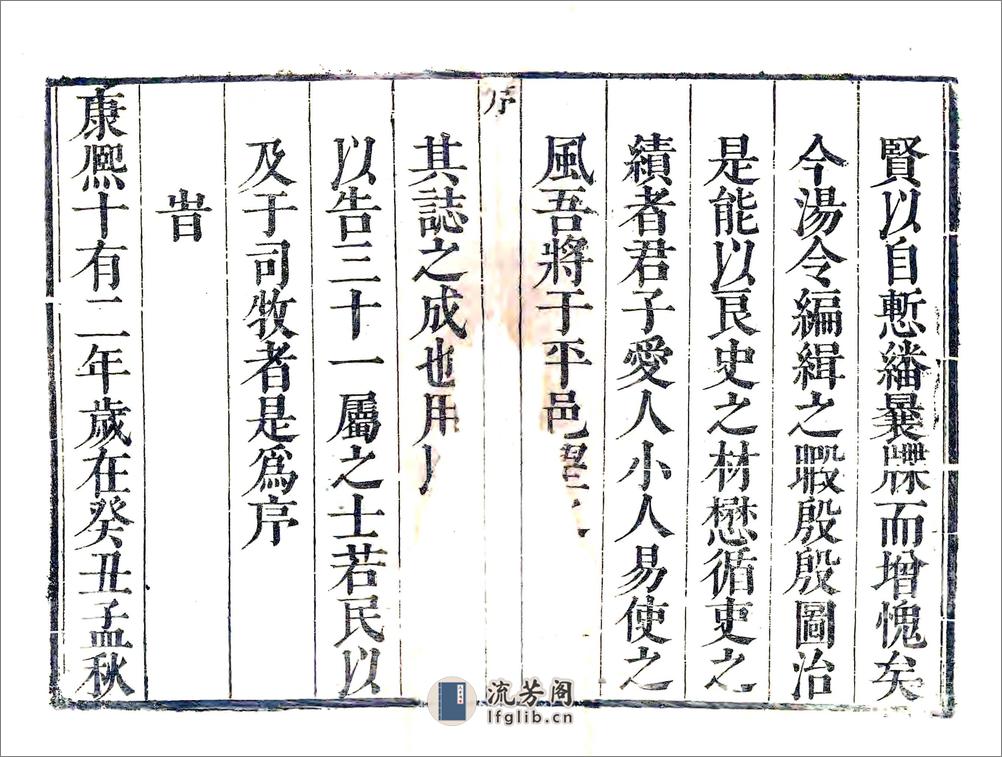 賢以自慙繙曩牒而增愧矣
今湯令編緝之暇殷殷圖治
是能以良史之材懋循吏之
績者君子愛人小人易使之
風吾將于平邑望之
序
其誌之成也用
以告三十一屬之士若民以
及于司牧者是爲序
旹
康熈十有二年歲在癸丑孟秋
流芳阁
lfglib.cn